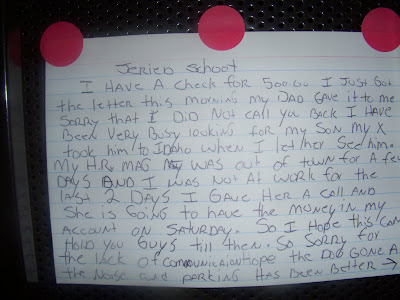 Jeried Schoot
I HAVE A CHECK FOR 500.00 I JUST GOT
the letter this morning my DAD GAVE it to me
SORRY that I DID NOT CALL you BACK I HAVE
BEEN VERY BUSY looking for my SON MY X
took him to IDAHO WHEN I let her SEE him.
MY H.R. MAG WAS OUT OF TOWN FOR A FEW
DAYS AND I WAS NOT At WORK FOR the
lAST 2 DAYS I GAVE HER A CALL AND
SHE IS GOING to HAVE the MONEY IN MY
ACCOUNT ON SATURDAY. SO I HOPE this CAN
HOLD you GUYS till then. SO SORRY FOR
the lack OF HOPE the DOG GONE
the NOISE AND PARKING HAS BEEN BETTER →